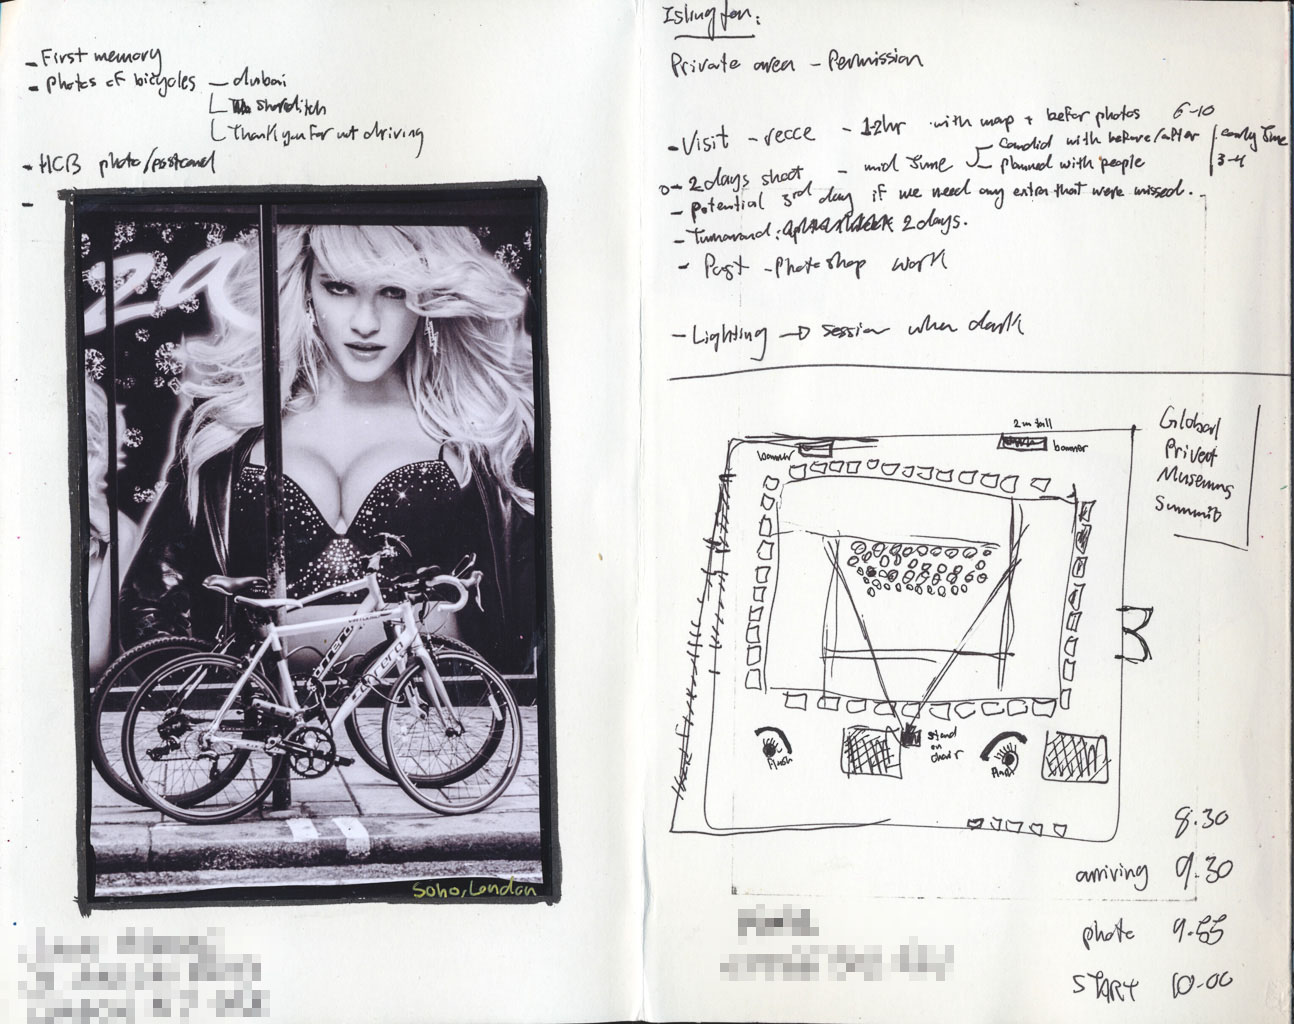 - First memory
- photos of bicycles - dubai
shorditch
Thank you for not driving
- HCB photo/postcard
-
za
Carrera
Carrera
Soho, London
Islington:
Private area - Permission
- Visit - recce - 1-2hr with map + befor photos 6-10
- 2 days shoot - mid June - candid with before/after early June
- planned with people 3-4
- potential 3rd day if we need any extra that were missed.
- Turnaround: 2 days.
- Post - Photoshop work
- Lighting → session when dark
Global
Privat
Museums
Summit
2m tall
banner
banner
stand
on
chair
flash
flash
8.30
arriving 9.30
photo 9.55
START 10.00